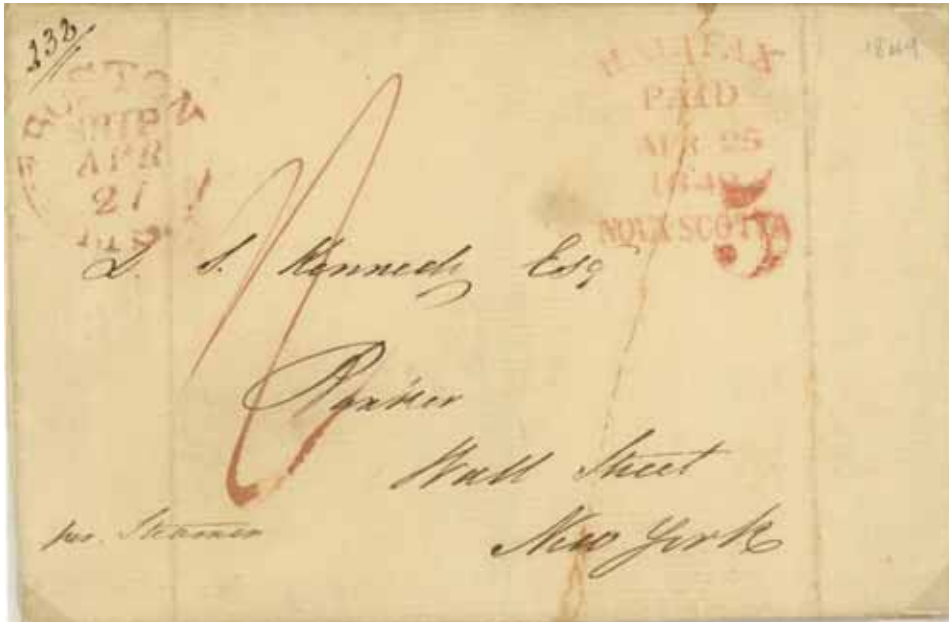 232
BOSTON
SHIP
APR
27
MS
HALIFAX
PAID
APR 25
1849
NOVA SCOTIA
5
1849
D. S. Kennedy Esqr
Banker
Wall Street
New York
per Steamer